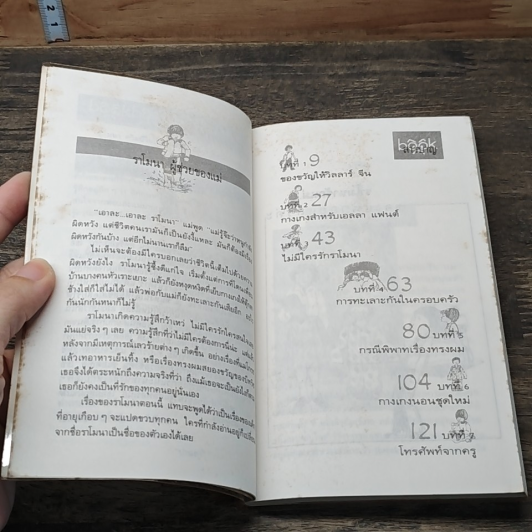 ราโมนา ผู้ช่วยของแม่
"เอาละ...เอาละ ราโมนา" แม่พูด "แม่รู้ซิว่าหนู
ผิดหวัง แต่ชีวิตคนเรามันก็เป็นยังงี้แหละ
ผิดหวังกันบ้าง แต่อีกไม่นานเราก็ลืม"
ไม่เห็นจะต้องมีใครบอกเลยว่าชีวิตนี้เต็มไปด้วย
ผิดหวังยังไง ราโมนารู้ซึ้งดีแก่ใจ เริ่มตั้งแต่การที่
บ้านบางคนหัวเราะเยาะ แล้วก็ยังหงุดหงิดที่
ช้างใส่ก็ใส่ไม่ได้ แล้วพ่อกับแม่ก็ยังทะเลาะกันเสียอีก
กันนักกันหนาก็ไม่รู้
ราโมนาเกิดความรู้สึกว้าเหว่ ไม่มีใครรักใคร
มันแย่จริงๆ เลย ความรู้สึกที่ว่าไม่มีใครต้องการนี่น่ะ
หลังจากมีเหตุการณ์เลวร้ายต่างๆ เกิดขึ้น อย่างเรื่อง
แล้วเทอาหารเย็นทิ้ง หรือเรื่องทรงผมสยองขวัญของ
เธอจึงได้ตระหนักถึงความจริงที่ว่า ถึงแม้เธอจะเป็น
เธอก็ยังคงเป็นที่รักของทุกคนอยู่นั่นเอง
เรื่องของราโมนาตอนนี้ แทบจะพูดได้ว่าเป็นเรื่องของ
ที่อายุเกือบๆ จะแปดขวบทุกคน ใครที่กำลังอ่านอยู่ก็
จากชื่อราโมนาเป็นชื่อของตัวเองได้เลย
book
สารบาญ
บทที่ 1 9
ของขวัญให้วิลลาร์ จีน
บทที่ 2 27
กางเกงสำหรับเอลลา แฟนต์
บทที่ 3 43
ไม่มีใครรักราโมนา
บทที่ 4 63
การทะเลาะกันในครอบครัว
80 บทที่ 5
กรณีพิพาทเรื่องทรงผม
104 บทที่ 6
กางเกงนอนชุดใหม่
121 บทที่ 7
โทรศัพท์จากครู
1
2